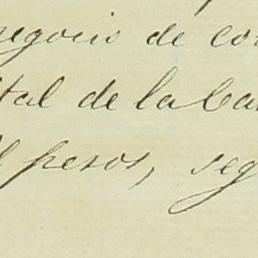 negocio de con
tal de la Ca
l pesos, seg